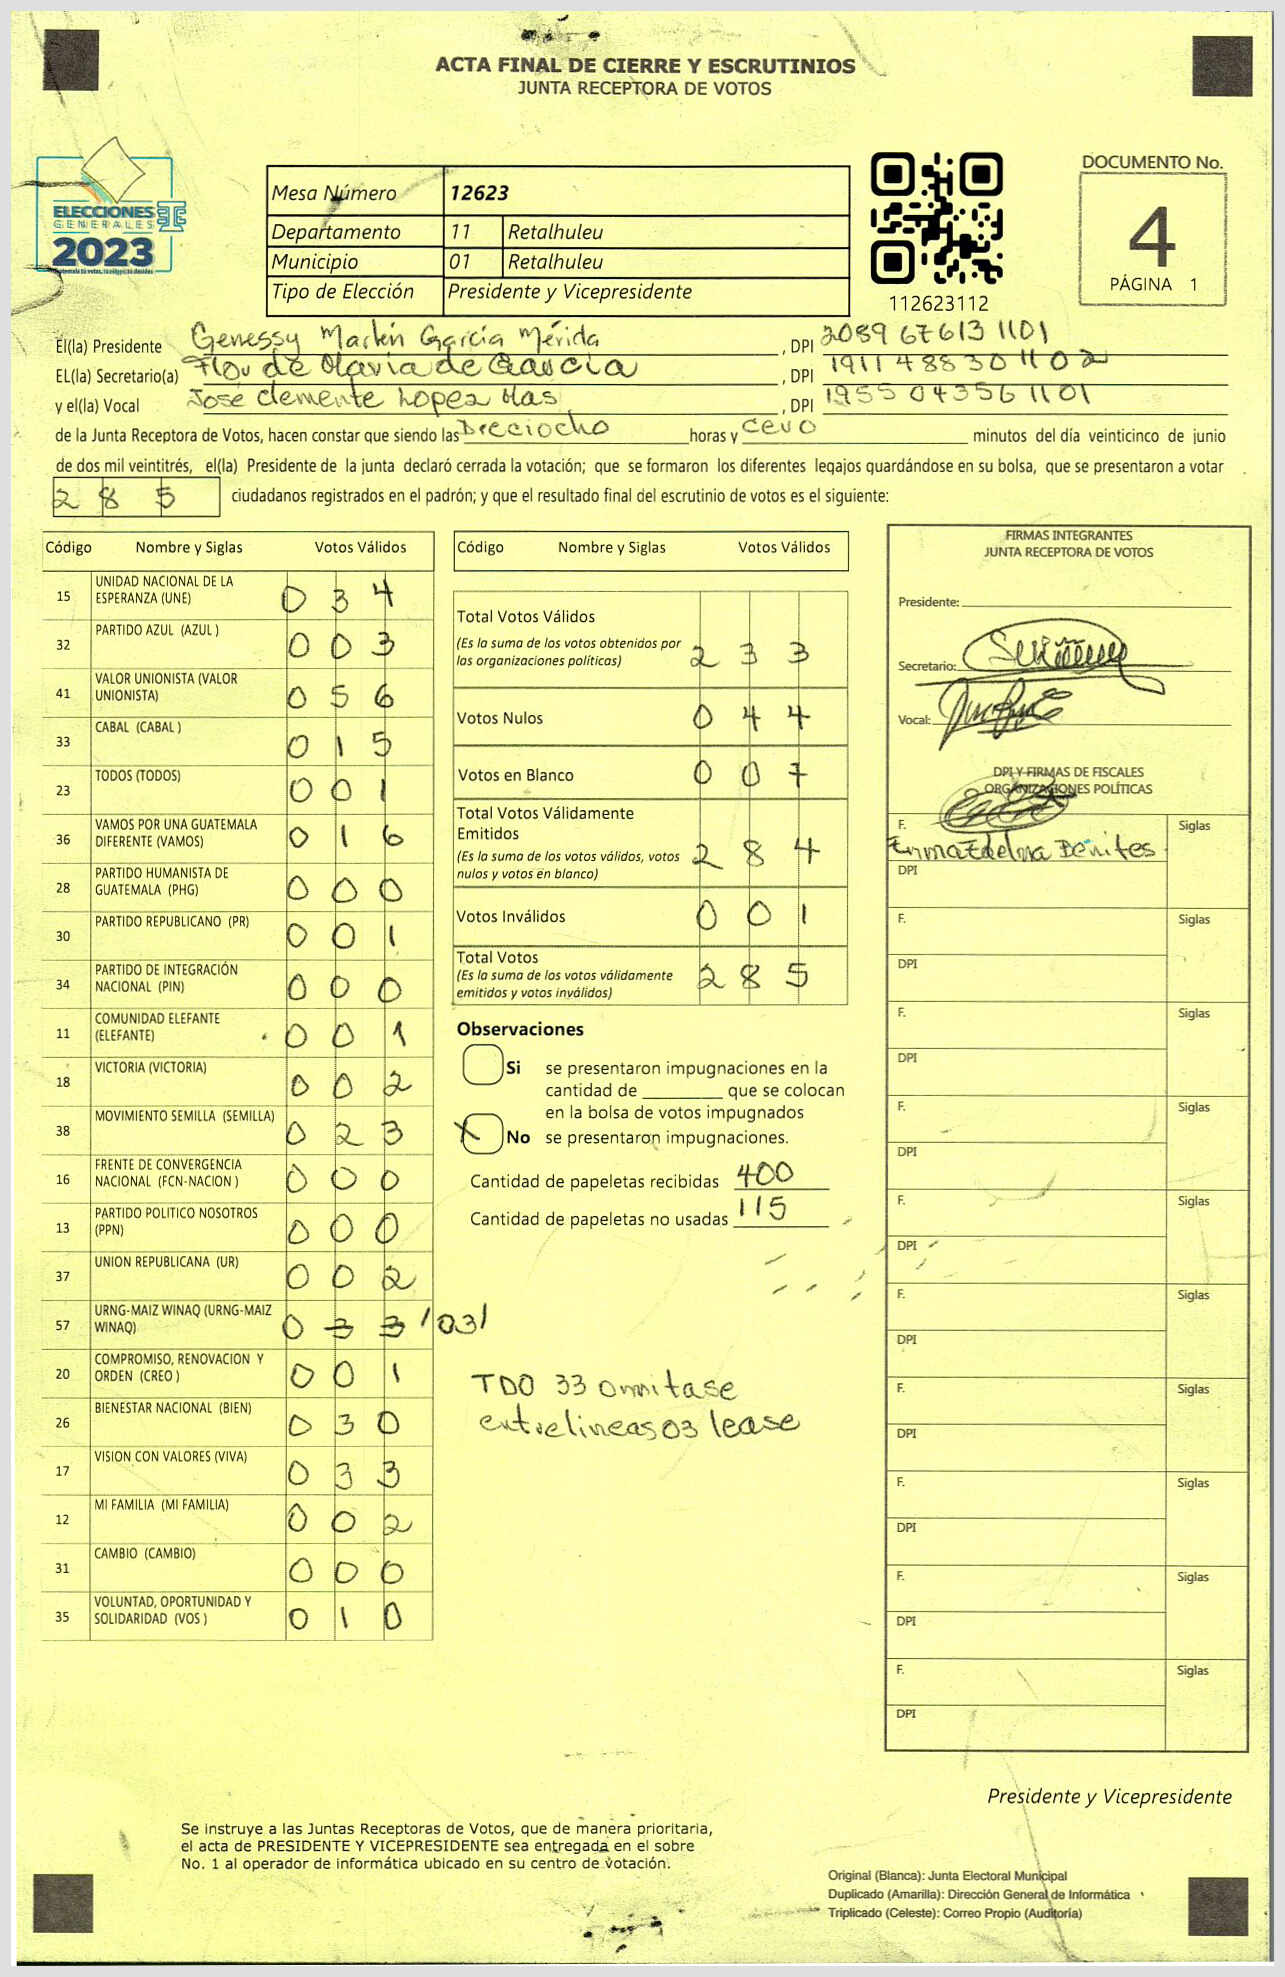 ACTA FINAL DE CIERRE Y ESCRUTINIOS
JUNTA RECEPTORA DE VOTOS
ELECCIONES
GENERALES
2023
Mesa Número 12623
Departamento 11 Retalhuleu
Municipio 01 Retalhuleu
Tipo de Elección Presidente y Vicepresidente
112623112
DOCUMENTO No.
4
PÁGINA 1
El(la) Presidente Genessy Marlen García Mérida , DPI 2089 67613 1101
EL(la) Secretario(a) Flor de Maria de Garcia , DPI 1911 48830 1102
y el(la) Vocal Jose Clemente Lopez Mas , DPI 1955 04356 1101
de la Junta Receptora de Votos, hacen constar que siendo las Dieciocho horas y cero minutos del día veinticinco de junio
de dos mil veintitrés, el(la) Presidente de la junta declaró cerrada la votación; que se formaron los diferentes legajos guardándose en su bolsa, que se presentaron a votar
285 ciudadanos registrados en el padrón; y que el resultado final del escrutinio de votos es el siguiente:
Código Nombre y Siglas Votos Válidos
15 UNIDAD NACIONAL DE LA ESPERANZA (UNE) 034
32 PARTIDO AZUL (AZUL ) 003
41 VALOR UNIONISTA (VALOR UNIONISTA) 056
33 CABAL (CABAL ) 015
23 TODOS (TODOS) 001
36 VAMOS POR UNA GUATEMALA DIFERENTE (VAMOS) 016
28 PARTIDO HUMANISTA DE GUATEMALA (PHG) 000
30 PARTIDO REPUBLICANO (PR) 001
34 PARTIDO DE INTEGRACIÓN NACIONAL (PIN) 000
11 COMUNIDAD ELEFANTE (ELEFANTE) 001
18 VICTORIA (VICTORIA) 002
38 MOVIMIENTO SEMILLA (SEMILLA) 023
16 FRENTE DE CONVERGENCIA NACIONAL (FCN-NACION ) 000
13 PARTIDO POLITICO NOSOTROS (PPN) 000
37 UNION REPUBLICANA (UR) 002
57 URNG-MAIZ WINAQ (URNG-MAIZ WINAQ) 033 /03/
20 COMPROMISO, RENOVACION Y ORDEN (CREO ) 001
26 BIENESTAR NACIONAL (BIEN) 030
17 VISION CON VALORES (VIVA) 033
12 MI FAMILIA (MI FAMILIA) 002
31 CAMBIO (CAMBIO) 000
35 VOLUNTAD, OPORTUNIDAD Y SOLIDARIDAD (VOS ) 010
Código Nombre y Siglas Votos Válidos
Total Votos Válidos
(Es la suma de los votos obtenidos por las organizaciones políticas) 233
Votos Nulos 044
Votos en Blanco 007
Total Votos Válidamente Emitidos
(Es la suma de los votos válidos, votos nulos y votos en blanco) 284
Votos Inválidos 001
Total Votos
(Es la suma de los votos válidamente emitidos y votos inválidos) 285
Observaciones
Si se presentaron impugnaciones en la
cantidad de ________ que se colocan
en la bolsa de votos impugnados
X No se presentaron impugnaciones.
Cantidad de papeletas recibidas 400
Cantidad de papeletas no usadas 115
TDO 33 omitase
entrelineas 03 lease
FIRMAS INTEGRANTES
JUNTA RECEPTORA DE VOTOS
Presidente:
Secretario:
Vocal:
DPI Y FIRMAS DE FISCALES
ORGANIZACIONES POLÍTICAS
F. Siglas
Irma Edelma Benites
DPI
F. Siglas
DPI
F. Siglas
DPI
F. Siglas
DPI
F. Siglas
DPI
F. Siglas
DPI
F. Siglas
DPI
F. Siglas
DPI
F. Siglas
DPI
F. Siglas
DPI
Presidente y Vicepresidente
Se instruye a las Juntas Receptoras de Votos, que de manera prioritaria,
el acta de PRESIDENTE Y VICEPRESIDENTE sea entregada en el sobre
No. 1 al operador de informática ubicado en su centro de votación.
Original (Blanca): Junta Electoral Municipal
Duplicado (Amarilla): Dirección General de Informática
Triplicado (Celeste): Correo Propio (Auditoría)